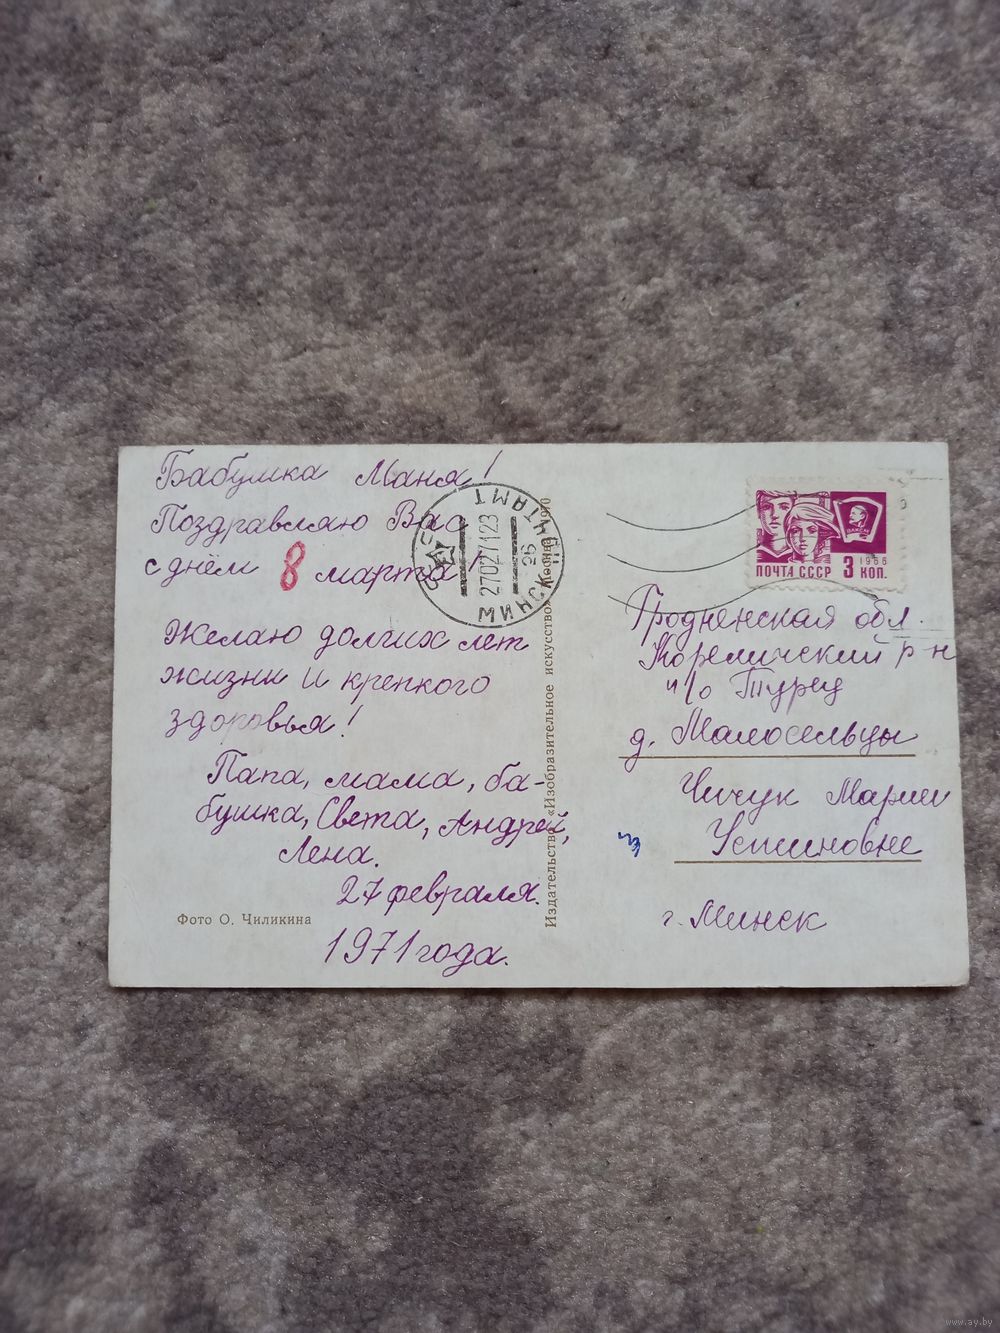 Бабушка Маня!
Поздравляю Вас
с днём 8 марта!
Желаю долгих лет
жизни и крепкого
здоровья!
Папа, мама, ба-
бушка, Света, Андрей,
Лена.
27 февраля.
1971 года.
Фото О. Чиликина
Издательство «Изобразительное искусство». Москва. 1970
СССР
МИНСК ПОЧТАМТ
27027123
26
ВЛКСМ
1966
ПОЧТА СССР 3 КОП.
Гродненская обл.
Кореличский р-н
п/о Турец
д. Малосельцы
Чичук Марии
Устиновне
г. Минск
www.ay.by